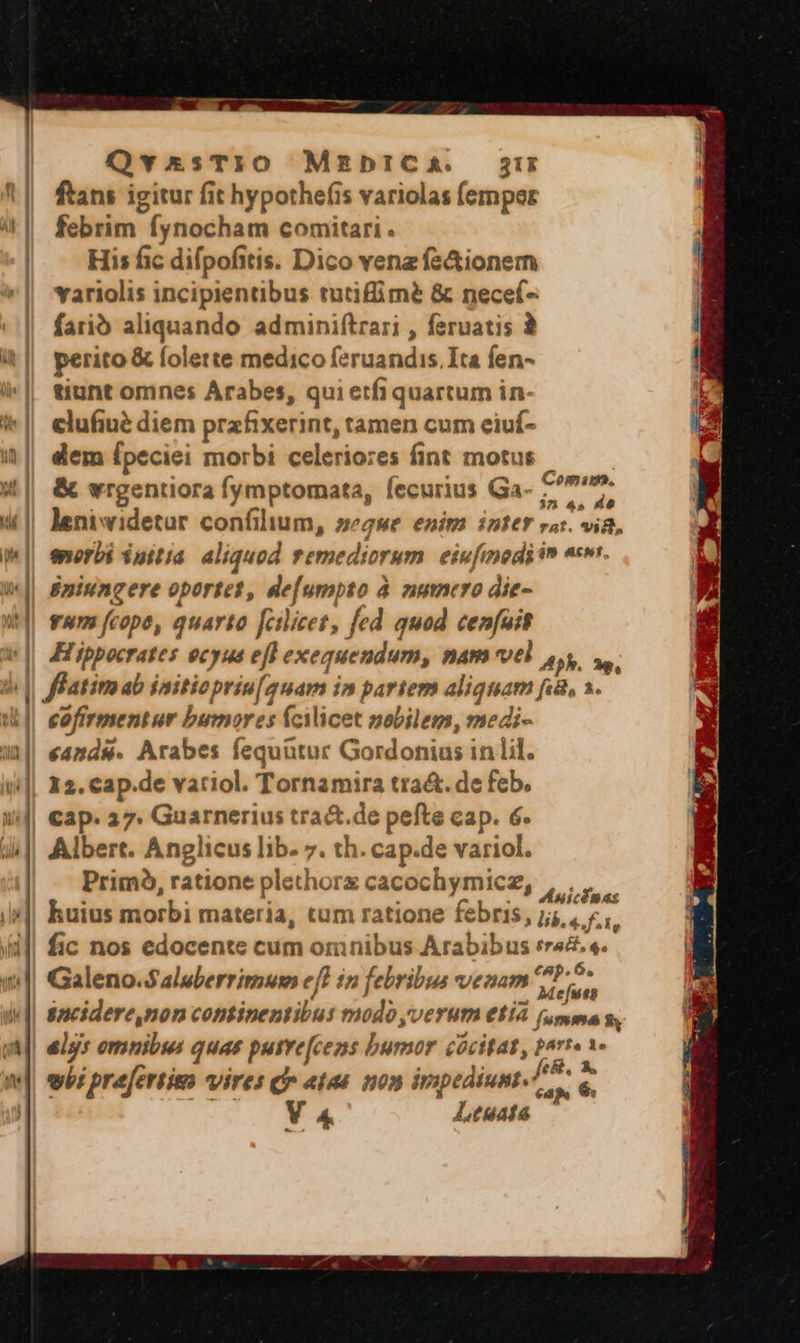 QVÆSTIO MEDICA. 311
ſtans igitur fit hypotheſis variolas ſemper
febrim ſynocham comitari.
His ſic diſpoſitis. Dico venæ ſectionem
variolis incipientibus tutiſſimè & neceſ-
ſariò aliquando adminiſtrari, ſeruatis à
perito & ſolerte medico ſeruandis. Ita ſen-
tiunt omnes Arabes, qui etſi quartum in-
cluſiuè diem præfixerint, tamen cum eiuſ-
dem ſpeciei morbi celeriores ſint motus
& vrgentiora ſymptomata, ſecurius Ga-
leni videtur conſilium, neque enim inter
morbi initia aliquod remediorum eiuſmodi
iniungere oportet, deſumpto à numero die-
rum ſcope, quarto ſcilicet, ſed quod cenſuit
Hippocrates ocyus eſt exequendum, nam vel
ſtatim ab initio priuſquam in partem aliquam
cōfirmentur humores ſcilicet nobilem, medi-
candū. Arabes ſequūtur Gordonius in lil.
12. cap. de variol. Tornamira tract. de feb.
cap. 37. Guarnerius tract. de peſte cap. 6.
Albert. Anglicus lib. 7. th. cap. de variol.
Primò, ratione plethoræ cacochymicæ,
huius morbi materia, tum ratione febris,
ſic nos edocente cum omnibus Arabibus
Galeno. Saluberrimum eſt in febribus venam
incidere, non continentibus modò, verum etiā
alijs omnibus quas putreſcens humor cōcitat,
vbi præſertim vires & ætas non impediunt.
V 4 Leuata
Comum.
in 4. de
rat. vict.
in acut.
Aph. 29.
ſect. 2.
Auicēnas
lib. 4. f. 1,
tract. 4.
cap. 6.
Meſues
ſumma 2.
parte 1.
ſect. 2.
cap. 6.